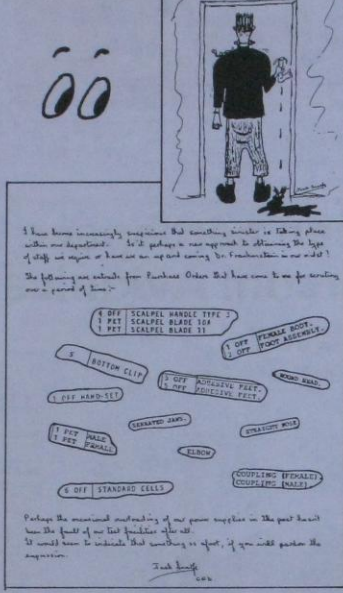 I have become increasingly suspicious that something sinister is taking place
within our department. Is it perhaps a new approach to obtaining the type
of staff we require or have we an up and coming Dr. Frankenstein in our midst?
The following are extracts from Purchase Orders that have come to me for scrutiny
over a period of time:-
4 OFF SCALPEL HANDLE TYPE 3
1 PKT SCALPEL BLADE 10A
1 PKT SCALPEL BLADE 11
1 OFF FEMALE BODY.
1 OFF FOOT ASSEMBLY.
5 BOTTOM CLIP
1 OFF ADHESIVE FEET.
OFF ADHESIVE FEET.
ROUND HEAD.
1 OFF HAND-SET
SERRATED JAWS.
STRAIGHT NOSE
1 PKT MALE
1 PKT FEMALE
ELBOW
COUPLING (FEMALE).
COUPLING (MALE).
6 OFF STANDARD CELLS
Perhaps the occasional overloading of our power supplies in the past hasn't
been the fault of our test facilities after all.
It would seem to indicate that something is afoot, if you will pardon the
expression.
Jack